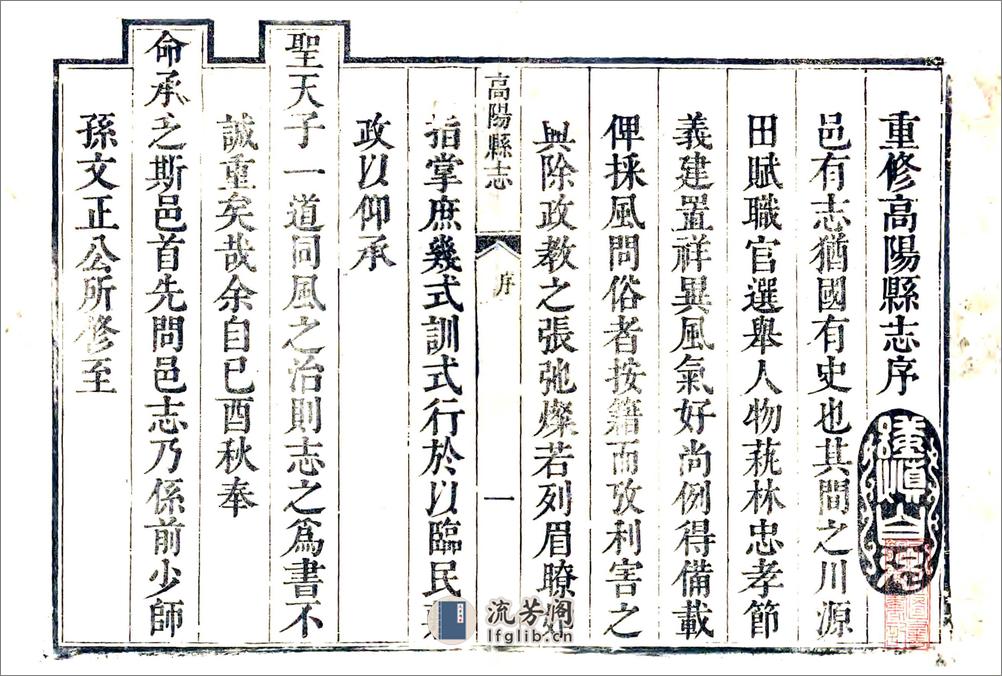 重修高陽縣志序
邑有志猶國有史也其間之川源
田賦職官選舉人物萟林忠孝節
義建置祥異風氣好尚例得備載
俾採風問俗者按籍而攷利害之
興除政教之張弛燦若列眉瞭
高陽縣志
序
一
指掌庶幾式訓式行於以臨民
政以仰承
聖天子一道同風之治則志之爲書不
誠重矣哉余自已酉秋奉
命承乏斯邑首先問邑志乃係前少師
孫文正公所修至
流芳阁
lfglib.cn